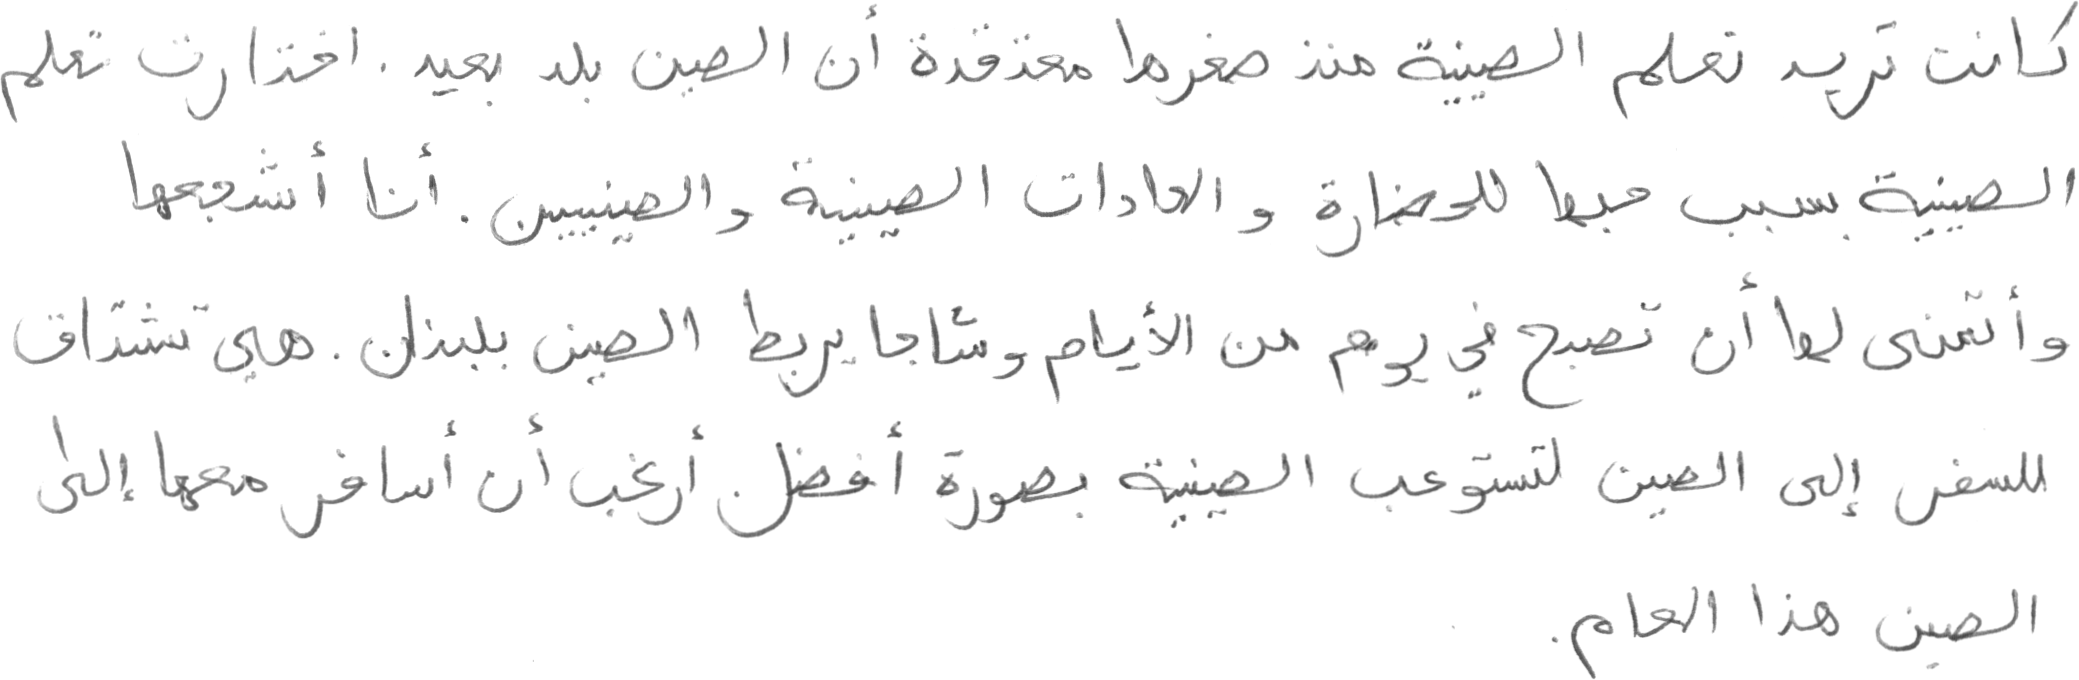 كانت تريد تعلم الصينية منذ صغرها معتقدة أن الصين بلد بعيد. اختارت تعلم
الصينية بسبب حبها للحضارة و العادات الصينية والصينيين. أنا أشجعها
وأتمنى لها أن تصبح في يوم من الأيام وشاجا يربط الصين بلبنان. هي تشتاق
للسفر إلى الصين لتستوعب الصينية بصورة أفضل. أرغب أن أسافر معها إلى
الصين هذا العام.